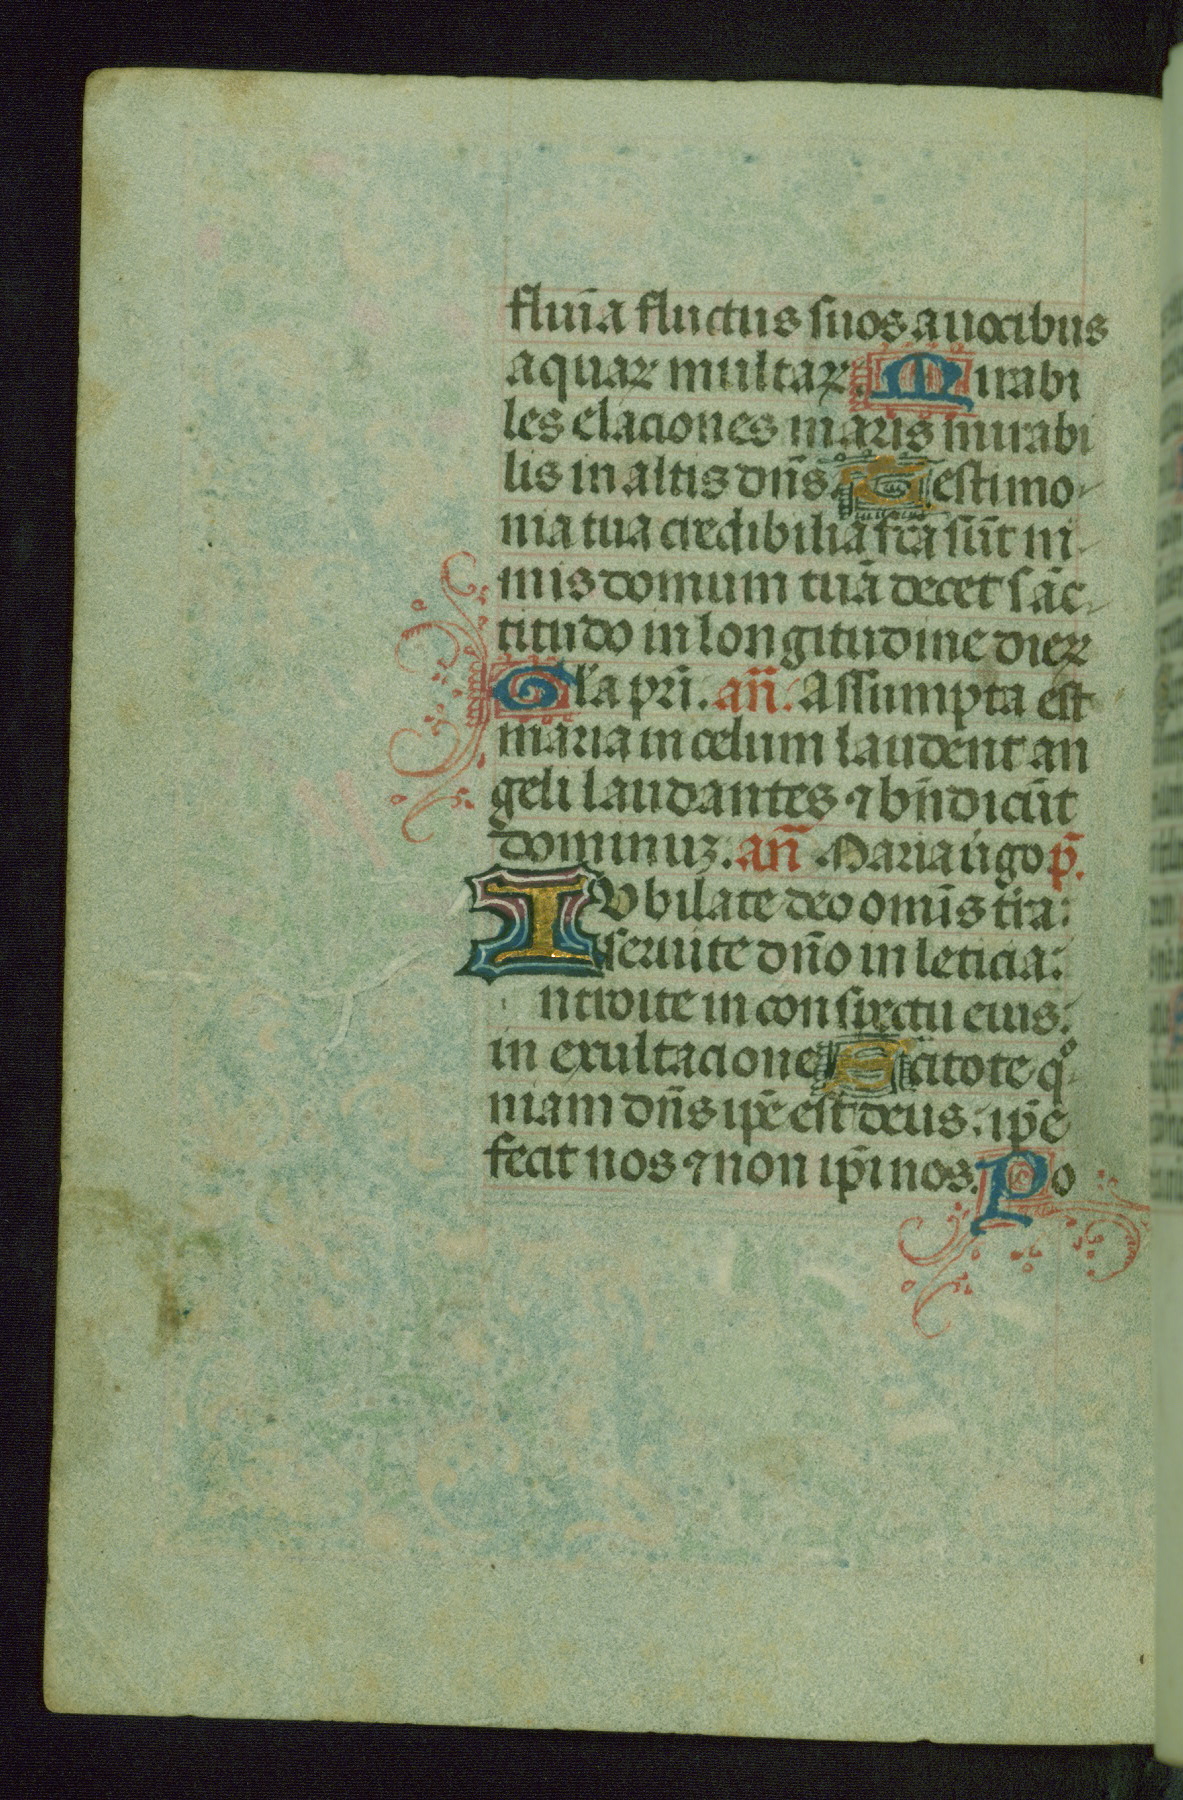 fluīa fluctus suos auocibus
aquaꝝ multaꝝ. Mirabi
les elaciones maris mirabi
lis in altis dn̄s Testimo
nia tua credibilia fc̄a sūt ni
mis domum tuā decet sāc
titudo in longitudine dieꝝ
Gl̄a pr̄i. an̄. Assumpta est
maria in celum laudent an
geli laudantes ⁊ bn̄dicūt
dominuꝫ. an̄ Maria ūgo p̄.
IUbilate deo omīs tr̄a:
seruite dn̄o in leticia:
ntroite in conspectu eius:
in exultacione Scitote qͦ
niam dn̄s ip̄e est deus: ip̄e
fecit nos ⁊ non ip̄i nos. Po